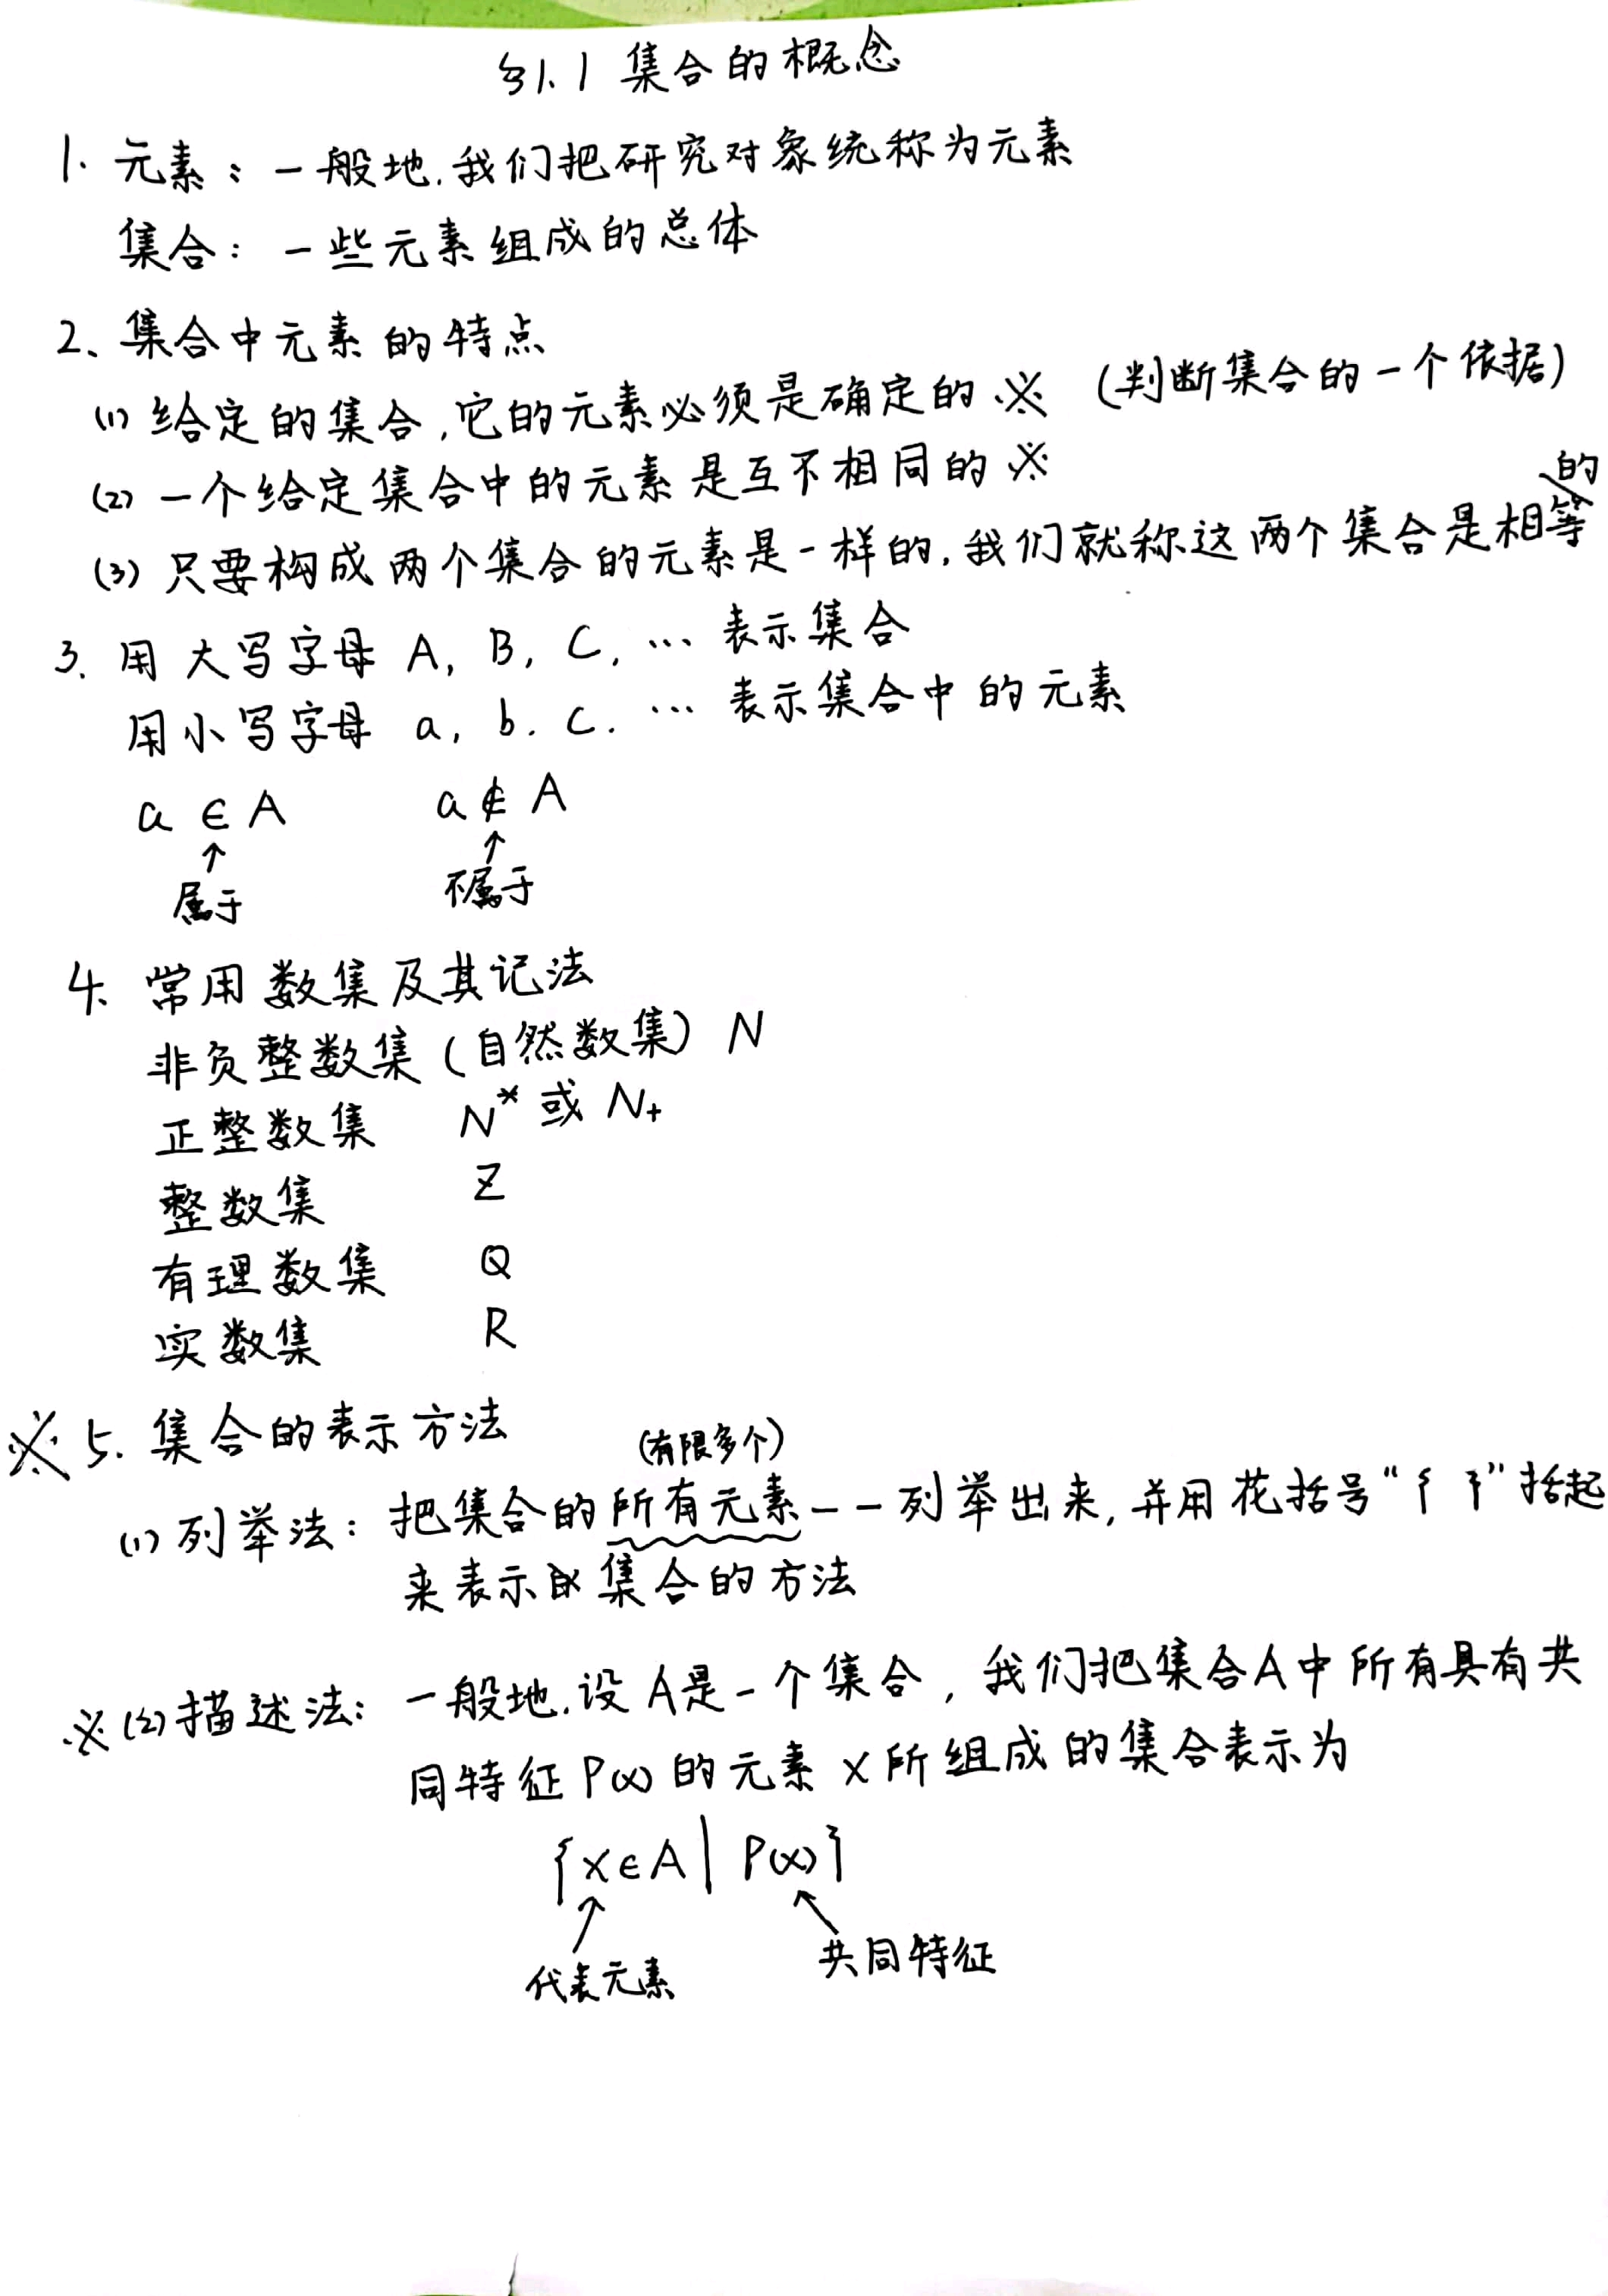 §1.1 集合的概念
1. 元素：一般地,我们把研究对象统称为元素
集合：一些元素组成的总体
2、集合中元素的特点
(1) 给定的集合,它的元素必须是确定的 ※ (判断集合的一个依据)
(2) 一个给定集合中的元素是互不相同的 ※
(3) 只要构成两个集合的元素是一样的,我们就称这两个集合是相等的
3. 用大写字母 A, B, C, … 表示集合
用小写字母 a, b, c, … 表示集合中的元素
a ∈ A a ∉ A
↑ ↑
属于 不属于
4. 常用数集及其记法
非负整数集 (自然数集) N
正整数集 N* 或 N₊
整数集 Z
有理数集 Q
实数集 R
※ 5. 集合的表示方法
(有限多个)
(1) 列举法：把集合的所有元素一一列举出来,并用花括号“{ }”括起
来表示集合的方法
※ (2) 描述法：一般地,设A是一个集合,我们把集合A中所有具有共
同特征P(x)的元素x所组成的集合表示为
{x∈A | P(x)}
↑ ↖
代表元素 共同特征